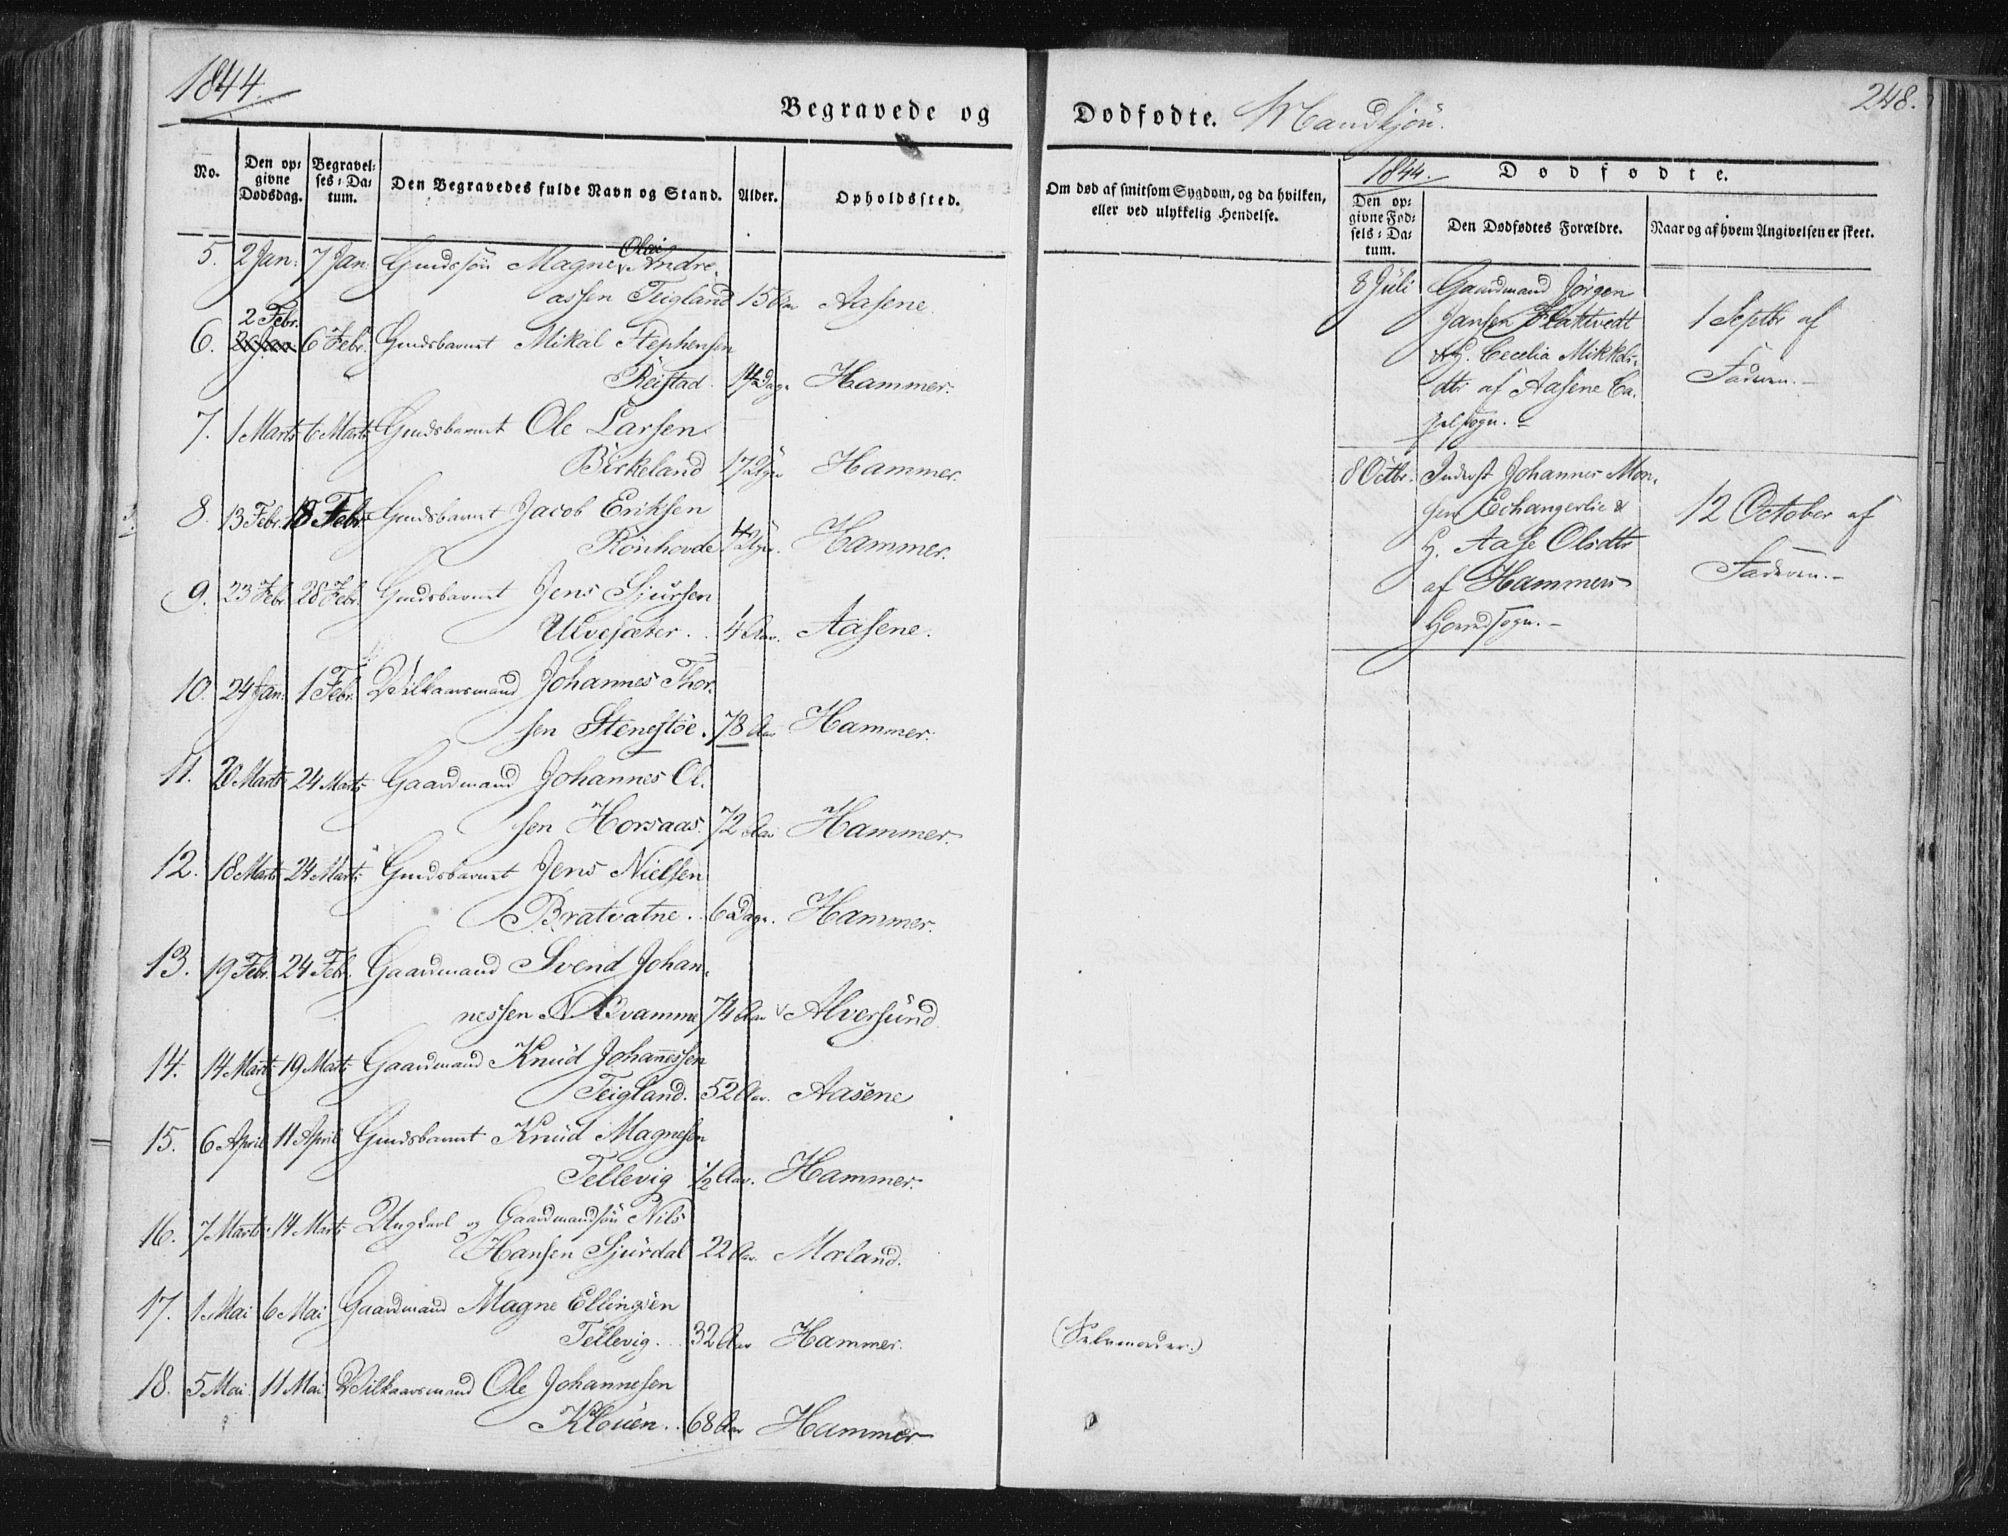 1844.
Begravede og
No.
Den op-givne Dødsdag.
Begravel-ses-Da-tum.
Den Begravedes fulde Navn og Stand.
Alder.
Opholdssted.
5. 2 Jan: 7 Jan: Gmdssön Magne Andre-
assen Teigland 15 Aar Aasene.
2 Febr.
6. 6 Febr. Gmdsbarnet Mikal Stephensen
Reistad. Dage Hammer.
7. 1 Marts 6 Marts Gmdsbarnet Ole Larsen
Birkeland Hammer.
8. 13 Febr. 18 Febr. Gmdsbarnet Jacob Eriksen
Rönhovde Hammer.
9. 23 Febr. 28 Febr. Gmdsbarnet Jens Sjursen
Ulvesæter. 4 Aar. Aasene.
10. 24 Jan: 1 Febr. Vilkaarsmand Johannes Thor-
sen Stenestöe. 78 Aar Hammer.
11. 20 Marts 24 Marts Gaardmand Johannes Ol-
sen Horsaas. 72 Aar Hammer.
12. 18 Marts 24 Marts Gmdsbarnet Jens Nielsen
Bratvatne. 6 Dage. Hammer.
13. 19 Febr. 24 Febr. Gaardmand Svend Johan-
nessen N. Qvamme 74 Aar Alversund
14. 14 Marts 19 Marts Gaardmand Knud Johannessen
Teigland. 52 Aar. Aasene
15. 6 April 11 April Gmdsbarnet Knud Magnesen
Tellevig 1/2 Aar. Hammer.
16. 7 Marts 14 Marts Ungkarl og Gaardmandsön Nils
Hansen Sjurdal 22 Aar. Mæland.
17. 1 Mai 6 Mai Gaardmand Magne Ellingsen
Tellevig. 32 Aar Hammer.
18. 5 Mai 11 Mai Vilkaarsmand Ole Johannesen
Klouen. 68 Aar Hammer
Dødfødte. Mandkjön.
248.
Om død af smitsom Sygdom, og da hvilken,
eller ved ulykkelig Hendelse.
1844. Dødfødte.
Den op-givne Fød-sels-Da-tum.
Den Dødfødtes Forældre.
Naar og af hvem Angivelsen er skeet.
8 Juli Gaardmand Jörgen
Jansen Flattvedt
H. Cecelia Mikkels-
dtr af Aasene Ca-
pelsogn.
1 Septbr af
Faderen.
8 Octbr. Inderst Johannes Mon-
sen Echangerlie &
H. Aase Olsdtr
af Hammers
Hovedsogn.
12 October af
Faderen.
(Selvmorder.)